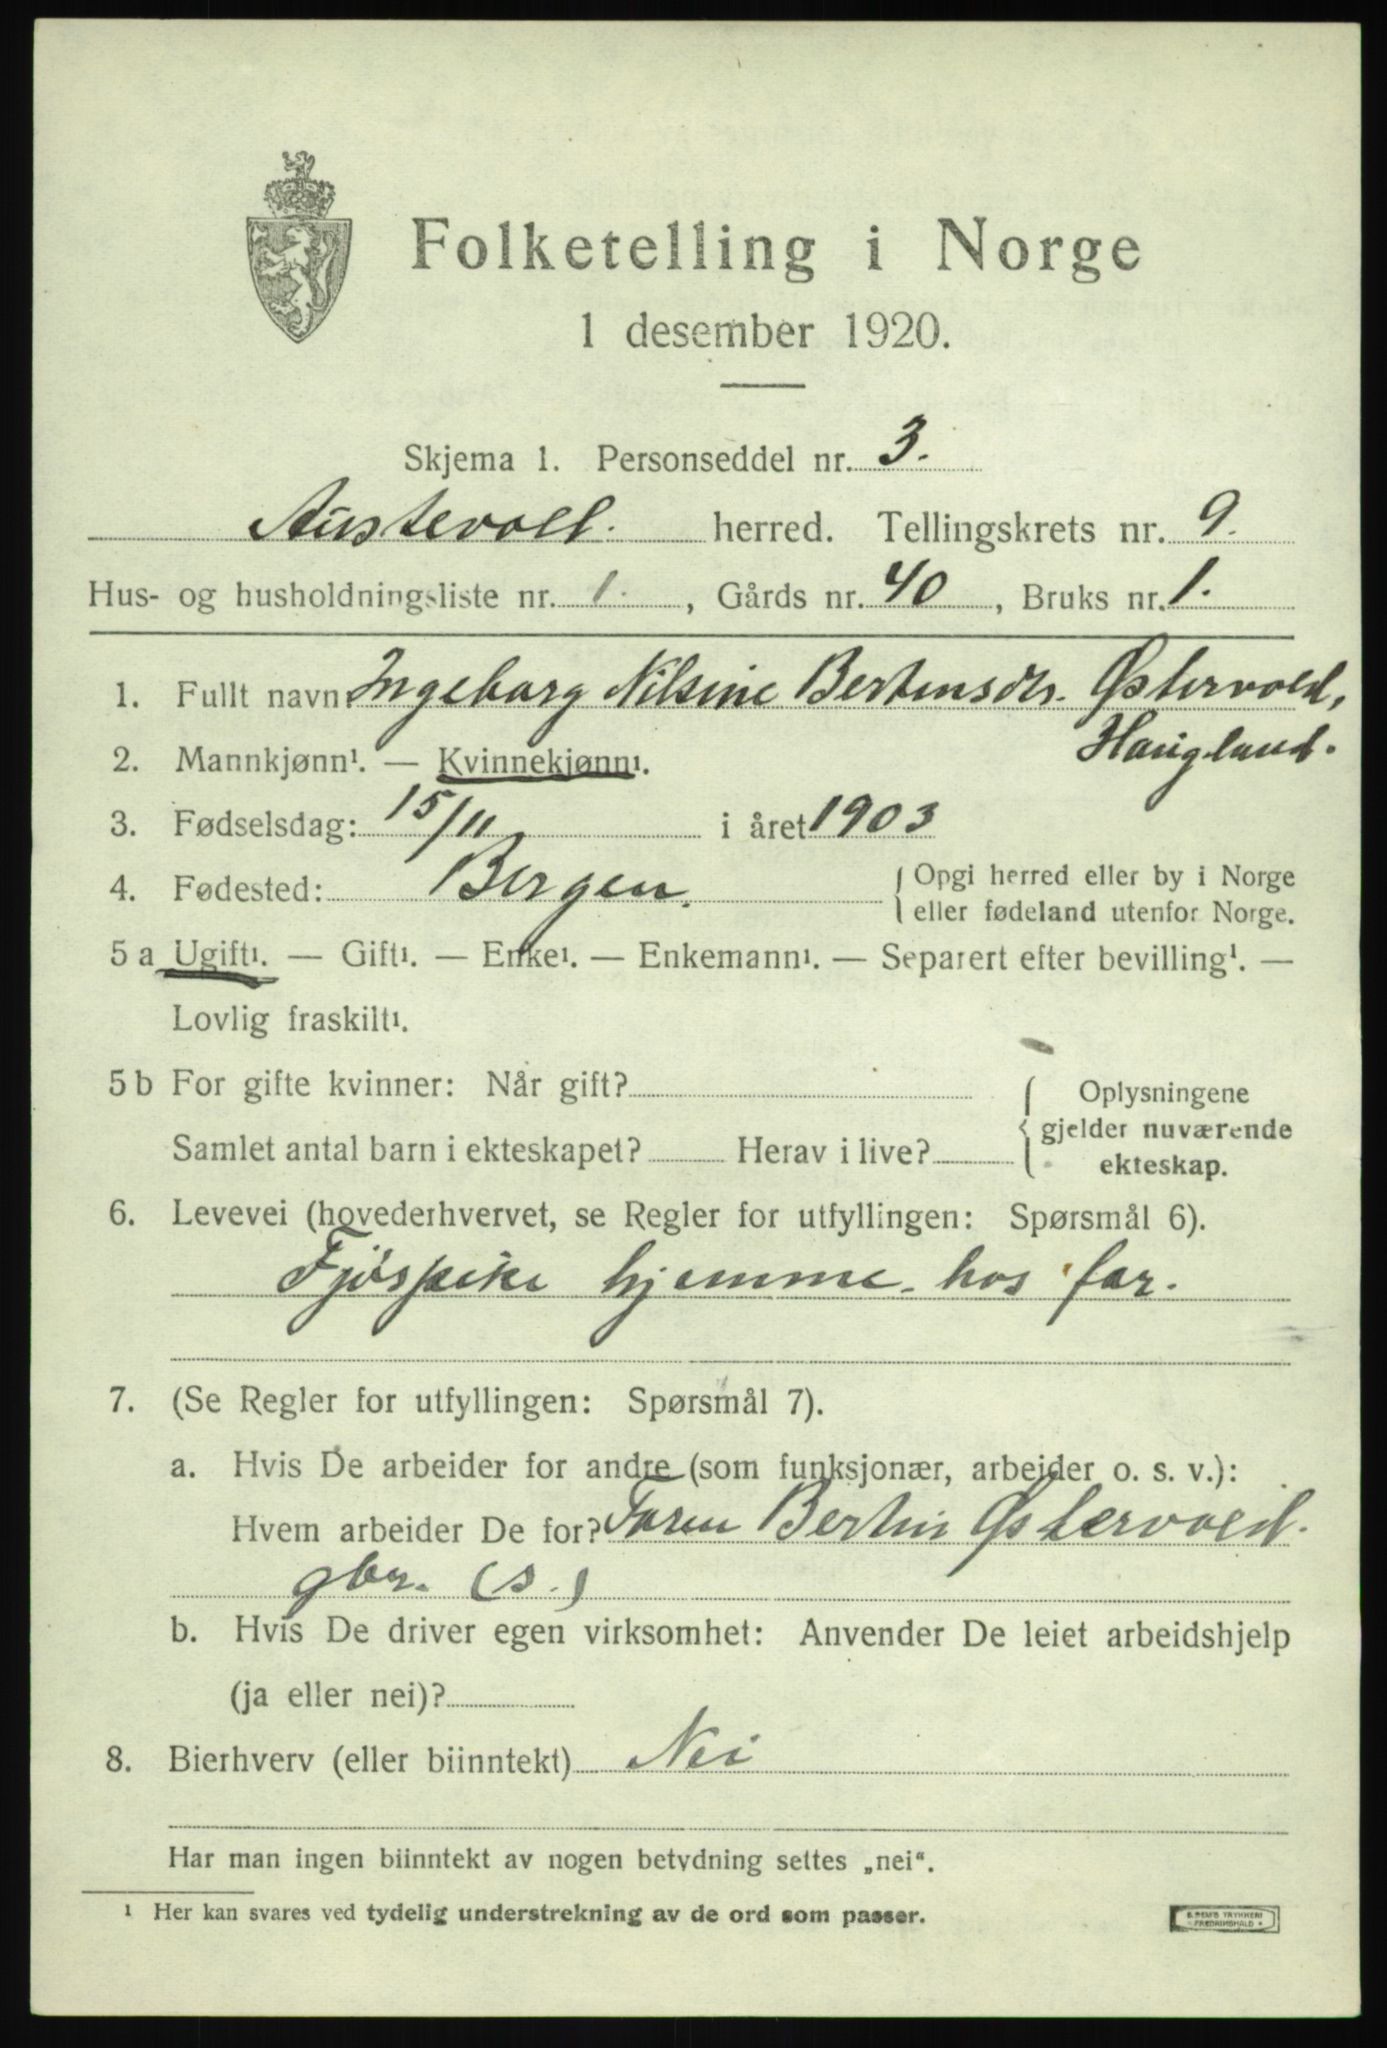 Folketelling i Norge
1 desember 1920.
Skjema 1. Personseddel nr. 3.
Austevoll. herred. Tellingskrets nr. 9.
Hus- og husholdningsliste nr. 1. , Gårds nr. 40 , Bruks nr. 1.
1. Fullt navn: Ingeborg Nilsine Bertinsdtr. Østervold,
Haugland.
2. Mannkjønn¹. — Kvinnekjønn¹.
3. Fødselsdag: 15/11 i året 1903
4. Fødested: Bergen. { Opgi herred eller by i Norge
eller fødeland utenfor Norge.
5 a Ugift¹. — Gift¹. — Enke¹. — Enkemann¹. — Separert efter bevilling¹. —
Lovlig fraskilt¹.
5 b For gifte kvinner: Når gift? { Oplysningene
gjelder nuværende
Samlet antal barn i ekteskapet? Herav i live?
ekteskap.
6. Levevei (hovederhvervet, se Regler for utfyllingen: Spørsmål 6).
Fjøspike hjemme hos far.
7. (Se Regler for utfyllingen: Spørsmål 7).
a. Hvis De arbeider for andre (som funksjonær, arbeider o. s. v.):
Hvem arbeider De for? Faren Bertin Østervold.
gbr. (s.)
b. Hvis De driver egen virksomhet: Anvender De leiet arbeidshjelp
(ja eller nei)?
8. Bierhverv (eller biinntekt) Nei
Har man ingen biinntekt av nogen betydning settes „nei".
¹ Her kan svares ved tydelig understrekning av de ord som passer.
E. SEM'S TRYKKERI
FREDRIKSHALD